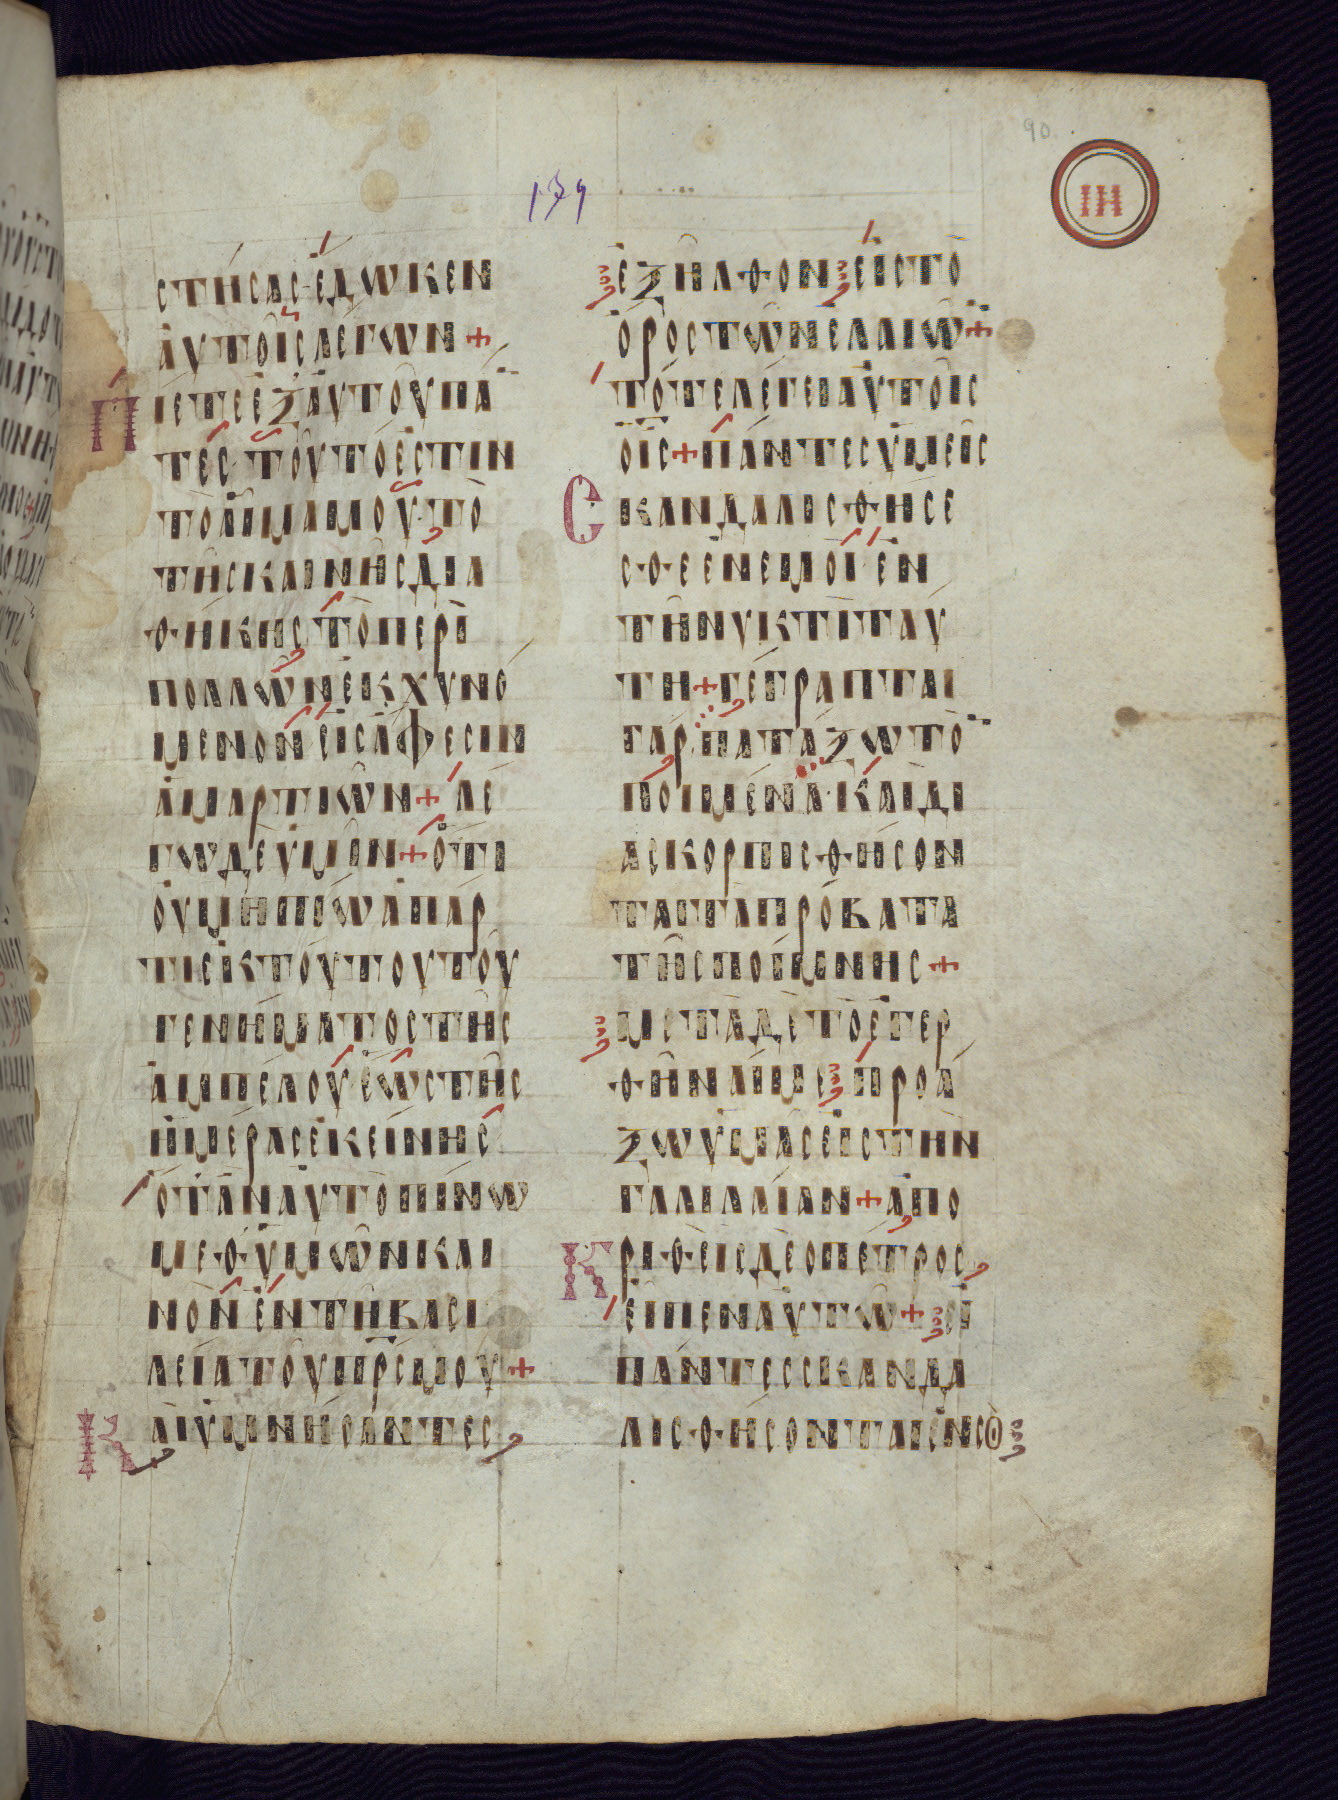 90
ΙΗ
179
ϲτήϲαϲ ἔδωκεν
ἀυτοῖϲ λεγων +
Πίετε ἐξ ἀυτοῦ πα̅
τεϲ· τοῦτο ἐϲτιν
τὸ ἅιμα μου· τὸ
τῆϲ καινῆϲ δια
θήκηϲ· τὸ περὶ
πολλῶν ἐκχυνό
μενον· ἐιϲ ἄφεϲιν
ἁμαρτιῶν + λέ
γω δὲ ὑμῖν + ὅτι
ὀυ μη πίω ἀπάρ
τι ἐκ τούτου τοῦ
γενήματοϲ τῆϲ
ἀμπέλου· ἕωϲ τῆϲ
ἡμέραϲ ἐκείνηϲ·
ὅταν ἀυτὸ πίνω
μεθ ὑμῶν και
νόν· ἐν τῆ βαϲι
λεία τοῦ π̅ρ̅ϲ μου +
Κὰι ὑμνήϲαντεϲ
ἐξῆλθον ἐιϲ τὸ
ὄροϲ τῶν ἐλαιῶ̅ +
τότε λέγει ἀυτοῖϲ
ὁ ι̅ϲ + πάντεϲ ὑμεῖϲ
Ϲκανδαλιϲθήϲε
ϲθε ἐν ἐμοὶ· ἐν
τῆ νυκτὶ ταύ
τη + γέγραπται
γάρ· πατάξω τὸ̅
ποιμένα· κὰι δι
αϲκορπιϲθήϲον
ται τὰ πρόβατα
τῆϲ ποίμνηϲ +
μετὰ δὲ τὸ ἐγερ
θῆναί με προά
ξω ὑμᾶϲ ἐιϲ τὴν
γαλιλαίαν + ἀπο
Κριθεὶϲ δὲ ὁ πέτροϲ
ἐιπεν ἀυτῶ + ἐι
πάντεϲ ϲκανδα
λιϲθήϲονται ἐν ϲὸι